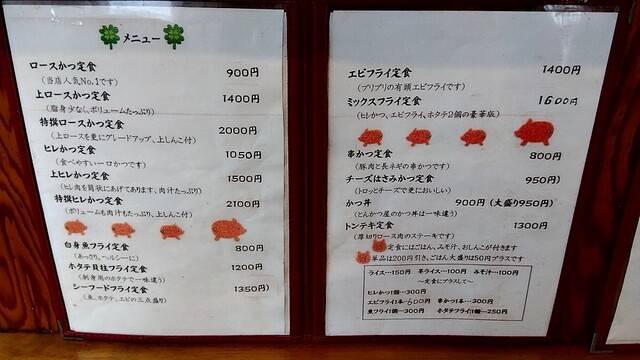 メニュー
ロースかつ定食 900円
(当店人気No.1です)
上ロースかつ定食 1400円
(脂身少なく、ボリュームたっぷり)
特撰ロースかつ定食 2000円
(上ロースを更にグレードアップ、上しんこ付)
ヒレかつ定食 1050円
(食べやすい一口かつです)
上ヒレかつ定食 1500円
(ヒレ肉を筒状にあげてあります、肉汁たっぷり)
特撰ヒレかつ定食 2100円
(ボリュームも肉汁もたっぷり、上しんこ付)
白身魚フライ定食 800円
(あっさり、ヘルシーに)
ホタテ貝柱フライ定食 1200円
(刺身用のホタテで一味違う)
シーフードフライ定食 1350円)
(魚、ホタテ、エビの三点盛り)
エビフライ定食 1400円
(プリプリの有頭エビフライです)
ミックスフライ定食 1600円
(ヒレかつ、エビフライ、ホタテ2個の豪華版)
串かつ定食 800円
(豚肉と長ネギの串かつです)
チーズはさみかつ定食 950円)
(トロッとチーズで更においしい)
かつ丼 900円 (大盛り950円)
(とんかつ屋のかつ丼は一味違う)
トンテキ定食 1300円
(厚切りロース肉のステーキです)
定食にはごはん、みそ汁、おしんこが付きます
単品は200円引き、ごはん大盛は50円プラスです
ライス…150円 半ライス…100円 みそ汁…100円
～定食にプラスして～
ヒレかつ1個…300円
エビフライ1本…600円 串かつ1本…300円
魚フライ1個…300円 ホタテフライ1個…250円